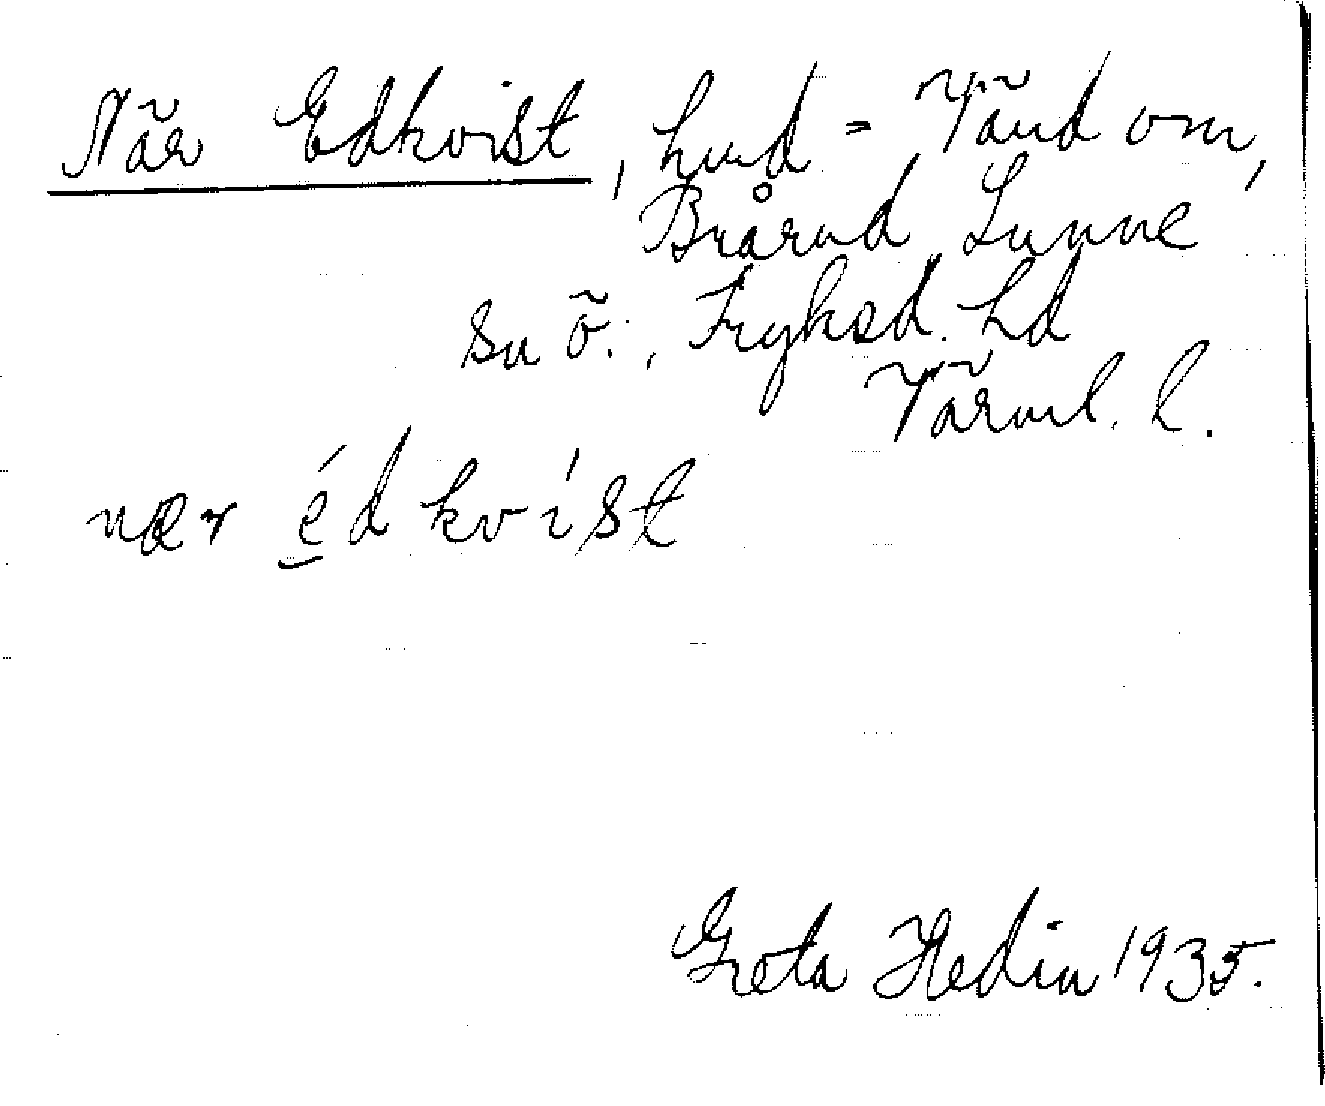 När Edkvist, hmd = Vänd om,
Brårud Sunne
sn ö., Fryksd. hd
Värml. l.
nær édkvíst
Greta Hedin 1935.